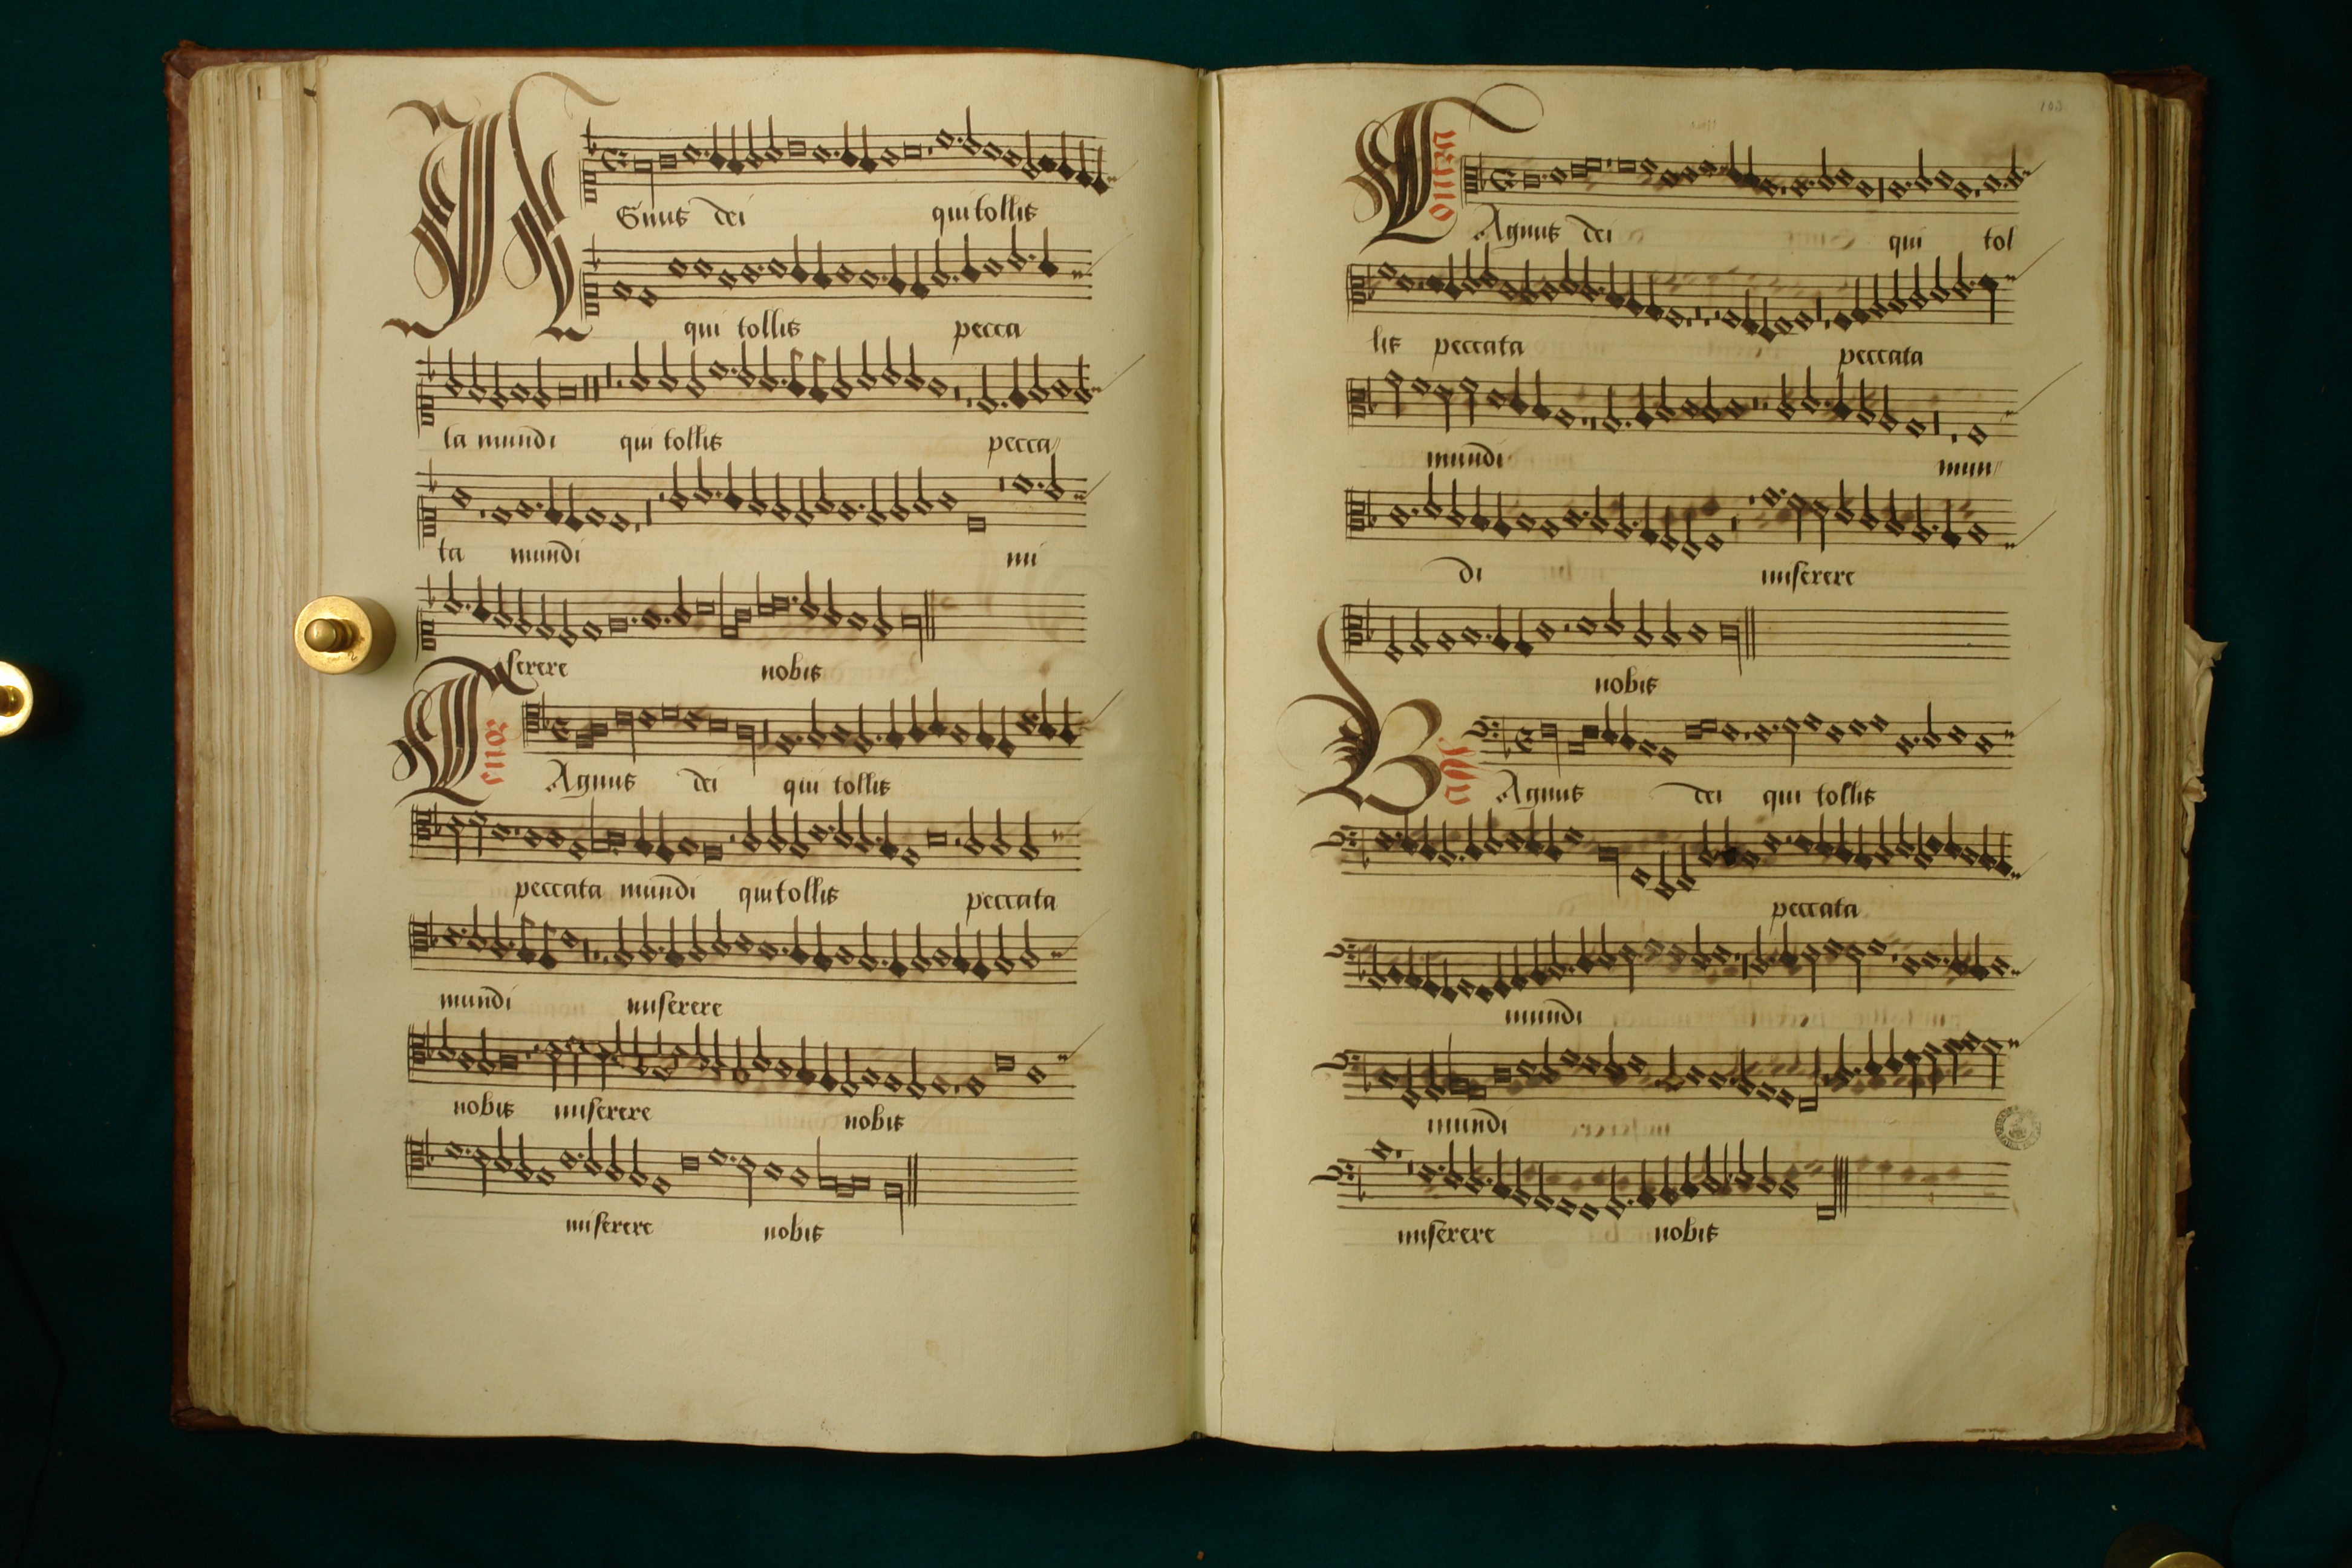 AGnus dei qui tollis
qui tollis pecca
ta mundi qui tollis pecca
ta mundi mi
serere nobis
Tenor
Agnus dei qui tollis
peccata mundi qui tollis peccata
mundi miserere
nobis miserere nobis
miserere nobis
103
Contra
Agnus dei qui tol
lis peccata peccata
mundi mun
di miserere
nobis
Bassa
Agnus dei qui tollis
peccata
mundi
mundi
miserere nobis